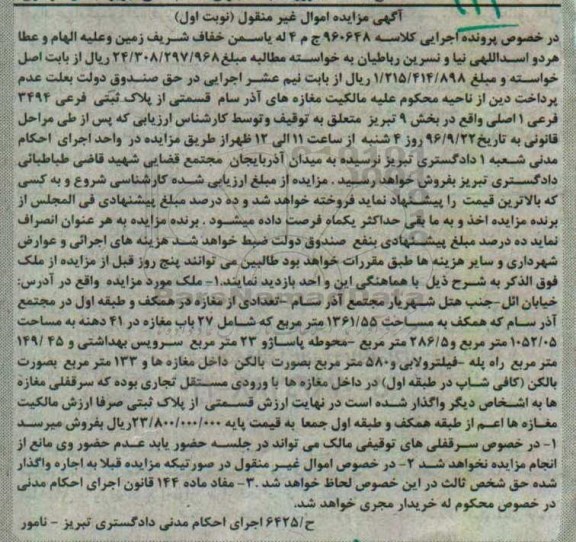 آگهی مزایده اموال غیر منقول (نوبت اول)
در خصوص پرونده اجرایی کلاسه ۹۶۰۶۴۸ ج م ۴ له یاسمن خفاف شریف زمین وعلیه الهام و عطا
هردو اسداللهی نیا و نسرین رباطیان به خواسته مطالبه مبلغ ۲۴/۳۰۸/۲۹۷/۹۶۸ ریال از بابت اصل
خواسته و مبلغ ۱/۲۱۵/۴۱۴/۸۹۸ ریال از بابت نیم عشر اجرایی در حق صندوق دولت بعلت عدم
پرداخت دین از ناحیه محکوم علیه مالکیت مغازه های آذر سام قسمتی از پلاک ثبتی فرعی ۳۴۹۴
فرعی ۱ اصلی واقع در بخش ۹ تبریز متعلق به توقیف وتوسط کارشناس ارزیابی که پس از طی مراحل
قانونی به تاریخ ۹۶/۹/۲۲ روز ۴ شنبه از ساعت ۱۱ الی ۱۲ ظهراز طریق مزایده در واحد اجرای احکام
مدنی شعبه ۱ دادگستری تبریز نرسیده به میدان آذربایجان مجتمع قضایی شهید قاضی طباطبائی
دادگستری تبریز بفروش خواهد رسید . مزایده از مبلغ ارزیابی شده کارشناسی شروع و به کسی
که بالاترین قیمت را پیشنهاد نماید فروخته خواهد شد و ده درصد مبلغ پیشنهادی فی المجلس از
برنده مزایده اخذ و به ما بقی حداکثر یکماه فرصت داده میشود . برنده مزایده به هر عنوان انصراف
نماید ده درصد مبلغ پیشنهادی بنفع صندوق دولت ضبط خواهد شد هزینه های اجرائی و عوارض
شهرداری و سایر هزینه ها طبق مقررات خواهد بود طالبین می توانند پنج روز قبل از مزایده از ملک
فوق الذکر به شرح ذیل با هماهنگی این و احد بازدید نمایند.۱- ملک مورد مزایده واقع در آدرس:
خیابان ائل-جنب هتل شهریار مجتمع آذر سام -تعدادی از مغازه در همکف و طبقه اول در مجتمع
آذر سام که همکف به مساحت ۱۳۶۱/۵۵ متر مربع که شامل ۲۷ باب مغازه در ۴۱ دهنه به مساحت
۱۰۵۲/۰۵ متر مربع و ۲۸۶/۵ متر مربع -محوطه پاساژو ۲۳ متر مربع سرویس بهداشتی و ۱۴۹/۴۵
متر مربع راه پله -فیلترولابی و ۵۸۰ متر مربع بصورت بالکن داخل مغازه ها و ۱۳۳ متر مربع بصورت
بالکن (کافی شاپ در طبقه اول) در داخل مغازه ها با ورودی مستقل تجاری بوده که سرقفلی مغازه
ها به اشخاص دیگر واگذار شده است در نهایت ارزش قسمتی از پلاک ثبتی صرفا ارزش مالکیت
مغازه ها اعم از طبقه همکف و طبقه اول جمعا به قیمت پایه ۲۳/۸۰۰/۰۰۰/۰۰۰ریال بفروش میرسد
۱- در خصوص سرقفلی های توقیفی مالک می تواند در جلسه حضور یابد عدم حضور وی مانع از
انجام مزایده نخواهد شد ۲- در خصوص اموال غیر منقول در صورتیکه مزایده قبلا به اجاره واگذار
شده حق شخص ثالث در این خصوص لحاظ خواهد شد .۳- مفاد ماده ۱۴۴ قانون اجرای احکام مدنی
در خصوص محکوم له خریدار مجری خواهد شد.
ح/۶۴۲۵ اجرای احکام مدنی دادگستری تبریز - نامور